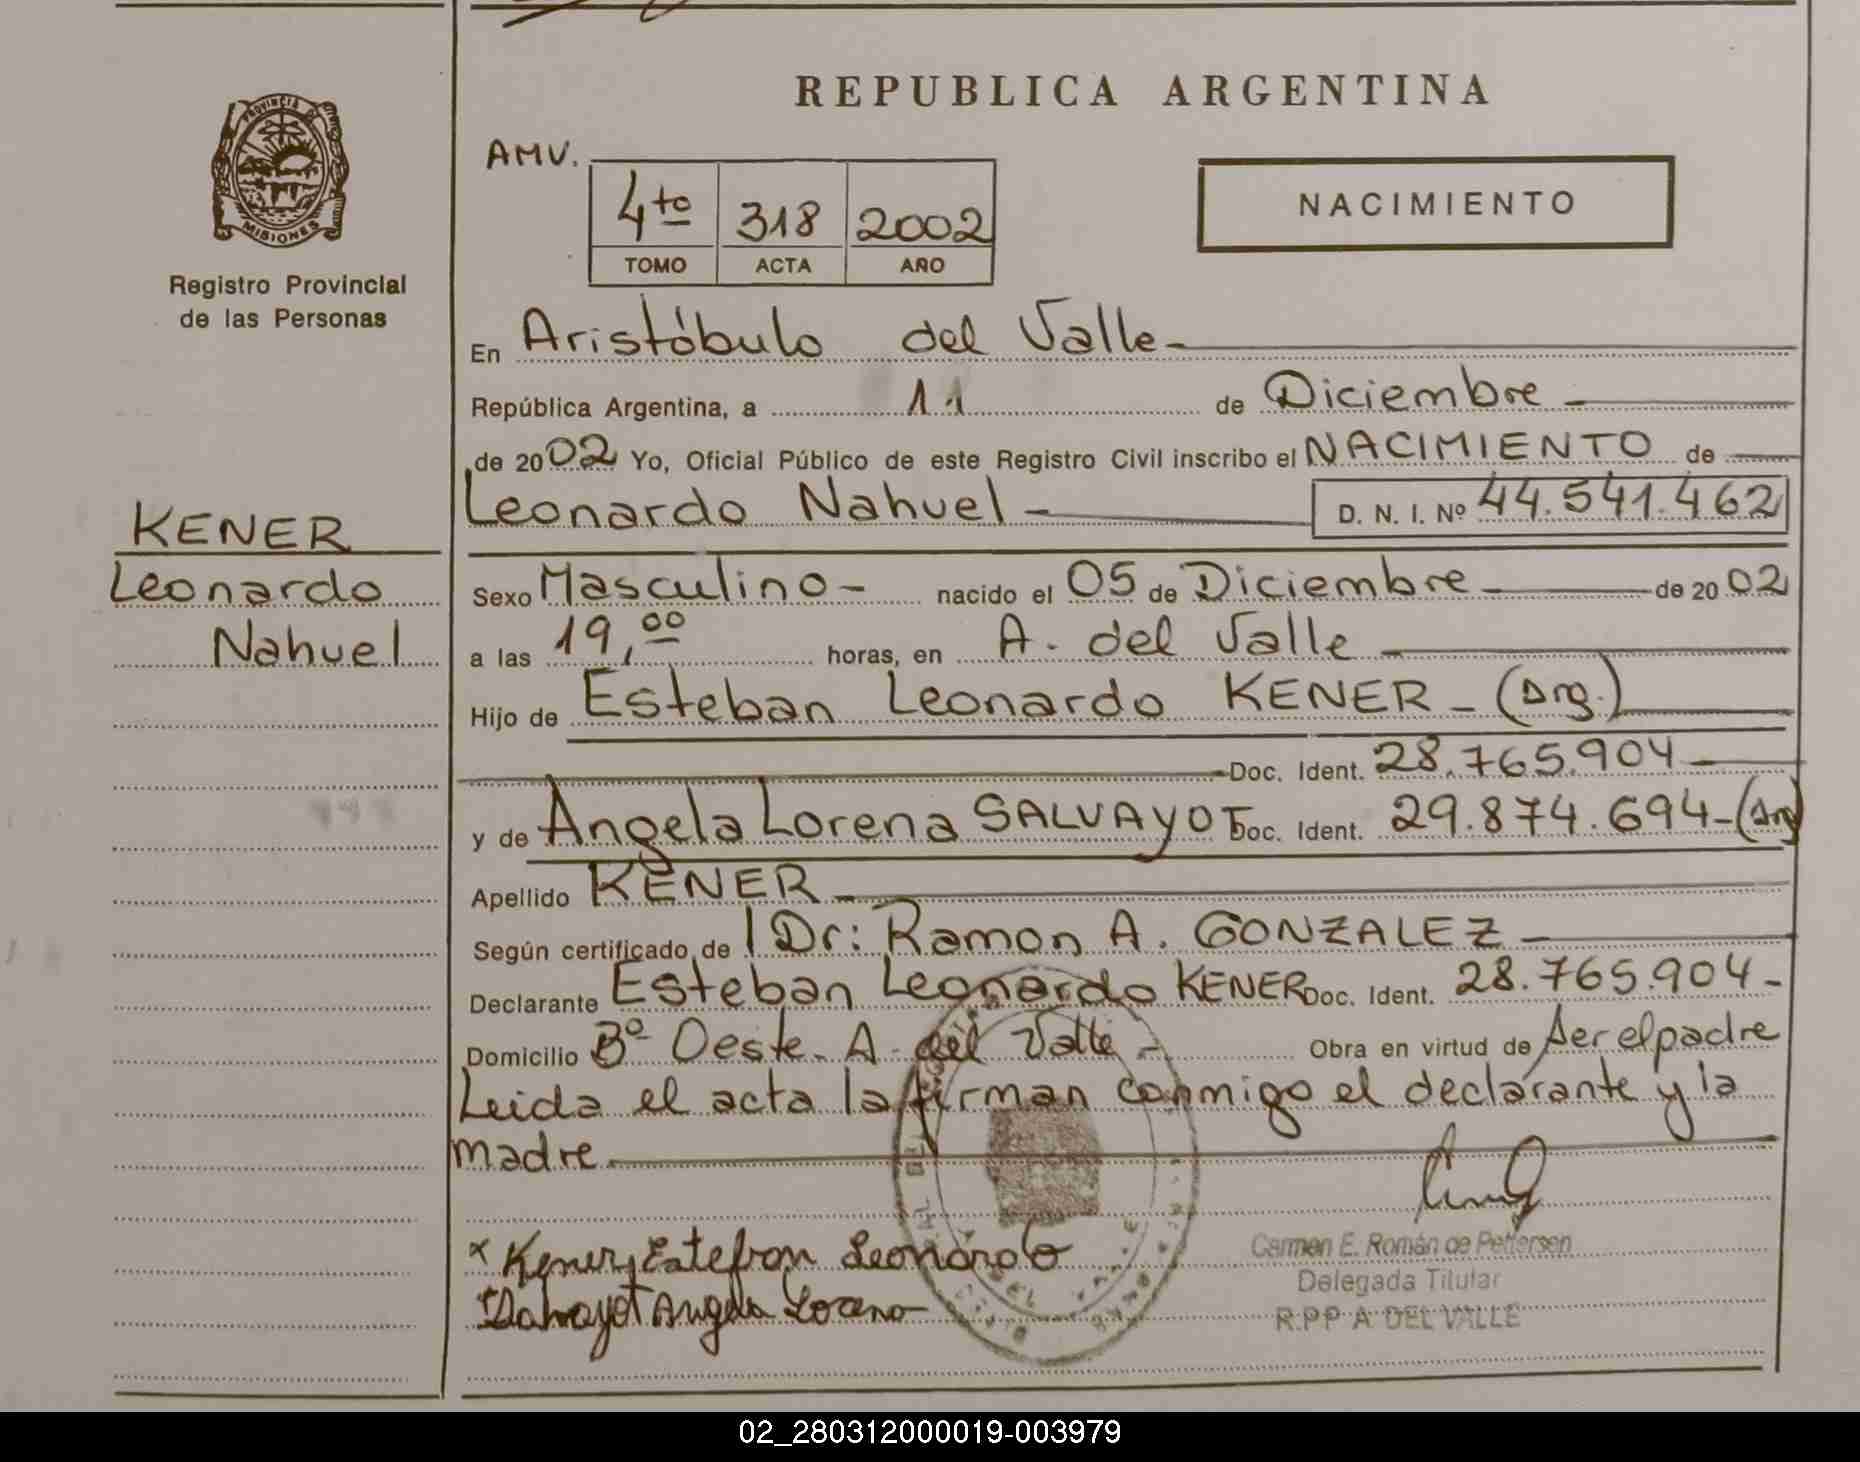 REPUBLICA ARGENTINA
PROVINCIA DE
MISIONES
Registro Provincial
de las Personas
AMV.
4to 318 2002
TOMO ACTA AÑO
NACIMIENTO
En Aristóbulo del Valle
República Argentina, a 11 de Diciembre
de 2002 Yo, Oficial Público de este Registro Civil inscribo el NACIMIENTO de
Leonardo Nahuel D. N. I. Nº 44.541.462
KENER
Leonardo
Nahuel
Sexo Masculino - nacido el 05 de Diciembre de 2002
a las 19,00 horas, en A. del Valle
Hijo de Esteban Leonardo KENER - (Arg.)
Doc. Ident. 28.765.904
y de Angela Lorena SALVAYOT Doc. Ident. 29.874.694-(Arg)
Apellido KENER
Según certificado de Dr: Ramon A. GONZALEZ
Declarante Esteban Leonardo KENER Doc. Ident. 28.765.904-
Domicilio Bº Oeste. A. del Valle - Obra en virtud de ser el padre
Leida el acta la firman conmigo el declarante y la
madre
x Kener, Estefan Leonardo
Salvayot Angela Lorena
Carmen E. Román de Pettersen
Delegada Titular
R.P.P A. DEL VALLE
02_280312000019-003979